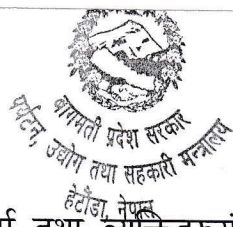 बागमती प्रदेश सरकार
पर्यटन, उद्योग तथा सहकारी मन्त्रालय
हेटौंडा, नेपाल
तथा